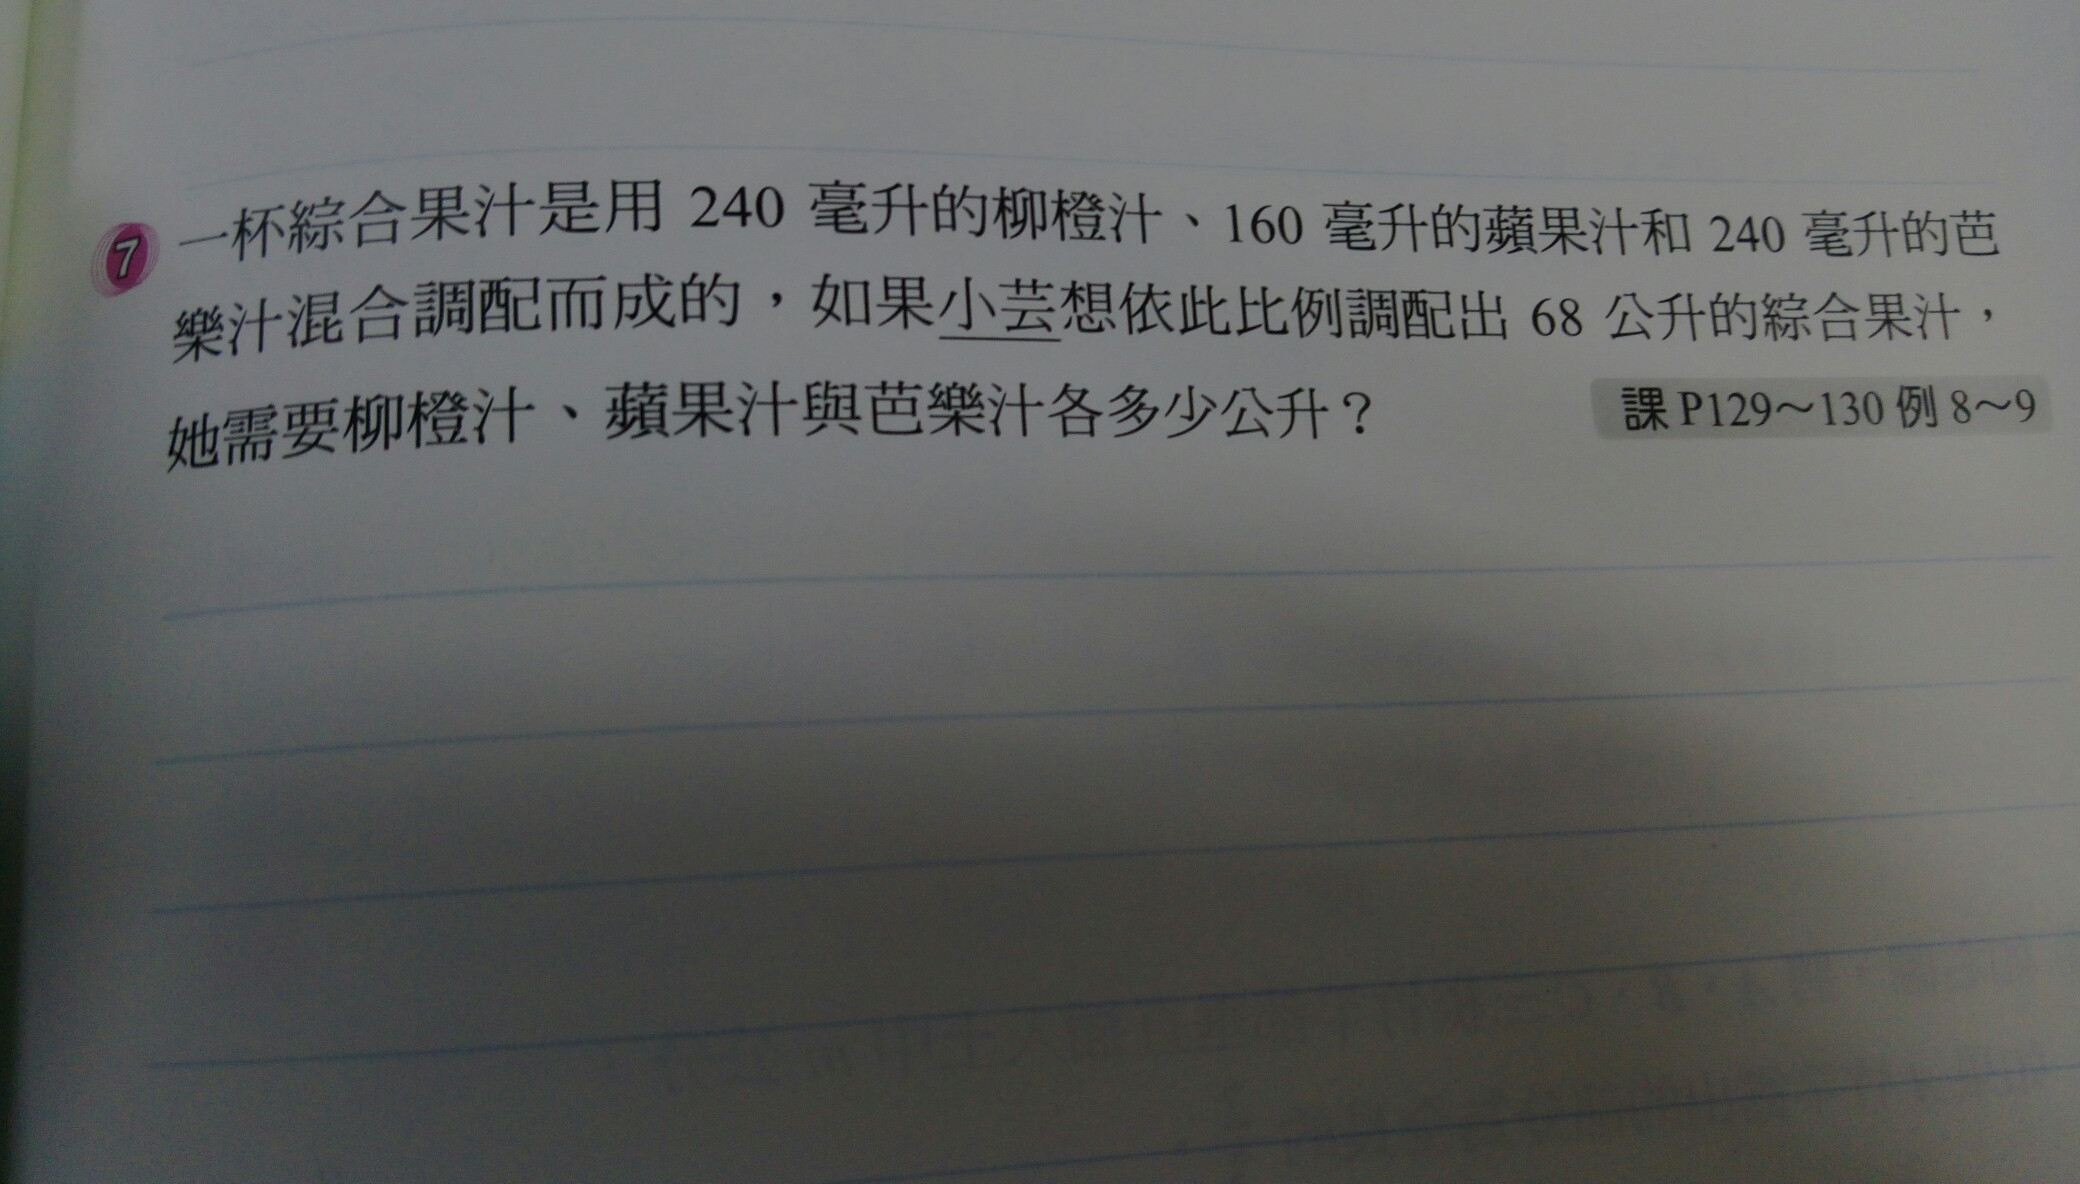 7 一杯綜合果汁是用 240 毫升的柳橙汁、160 毫升的蘋果汁和 240 毫升的芭
樂汁混合調配而成的，如果小芸想依此比例調配出 68 公升的綜合果汁，
她需要柳橙汁、蘋果汁與芭樂汁各多少公升？
課 P129～130 例 8～9